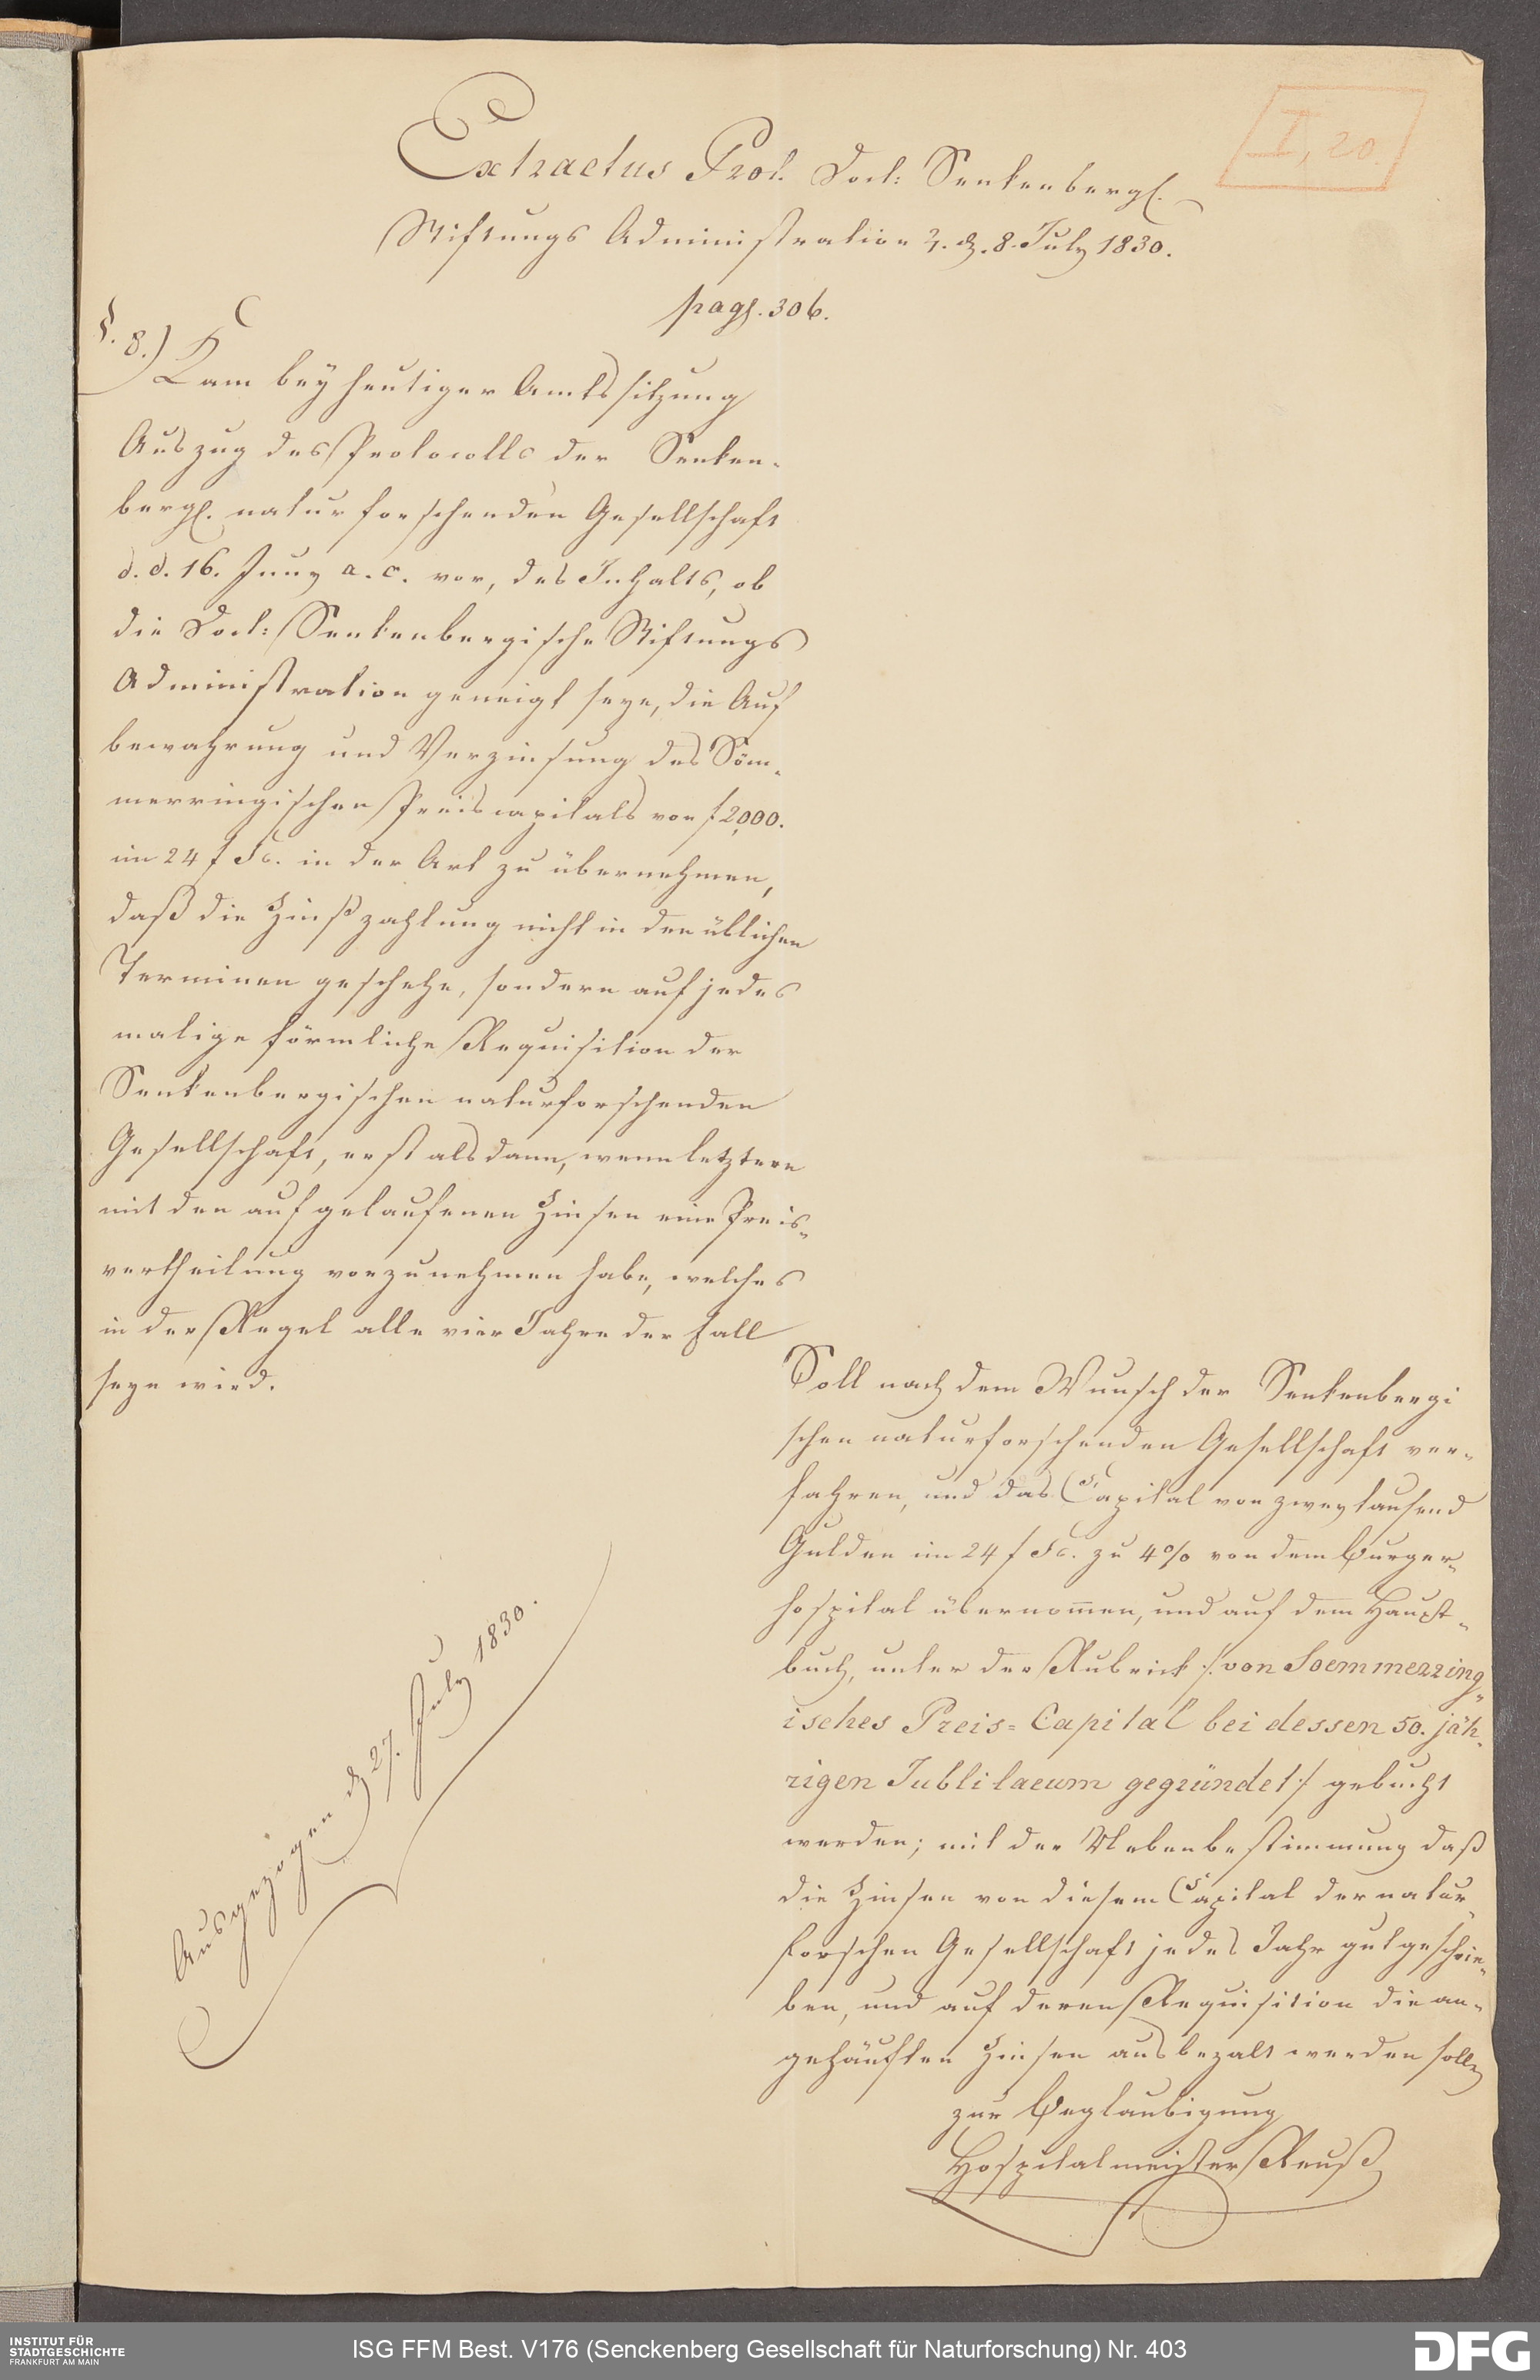 I, 20.
Extractus Prot. Doct: Senkenbergs.
Stiftungs Administration d. d. 8. July 1830.
pags. 306.
§. 8.) Kam bey heutiger Amtssitzung
Auszug des Protocolls der Senken-
bergs. naturforschenden Gesellschaft
d. d. 16. Juny a. c. vor, des Inhalts, ob
die Doct: Senkenbergische Stiftungs
Administration geneigt seye, die Auf
bewahrung und Verzinsung des Söm-
merringischen Preiscapitals von f 2,000.
im 24 f Fc. in der Art zu übernehmen,
daß die Zinßzahlung nicht in den üblichen
Terminen geschehe, sondern auf jedes
malige förmliche Requisition der
Senkenbergischen naturforschenden
Gesellschaft, erst alsdann, wenn letztere
mit den aufgelaufenen Zinsen eine Preis-
vertheilung vorzunehmen habe, welches
in der Regel alle vier Jahre der Fall
seyn wird.
Soll nach dem Wunsch der Senkenbergi
schen naturforschenden Gesellschaft ver-
fahren, und das Capital von zweytausend
Gulden im 24 f Fc. zu 4% von dem Burger-
hospital übernommen, und auf dem Haupt-
buch, unter der Rubrick /: von Soemmerring-
isches Preis-Capital bei dessen 50. jäh-
rigen Jublilaeum gegründet :/ gebucht
werden; mit der Nebenbestimmung daß
die Zinsen von diesem Capital der natur
forschen Gesellschaft jedes Jahr gutgeschrie-
ben, und auf deren Requisition die an-
gehäuften Zinsen ausbezalt werden solln
zur Beglaubigung
Hospitalmeister Reuß
Ausgezogen d 27. July 1830.
INSTITUT FÜR
STADTGESCHICHTE
FRANKFURT AM MAIN
ISG FFM Best. V176 (Senckenberg Gesellschaft für Naturforschung) Nr. 403
DFG